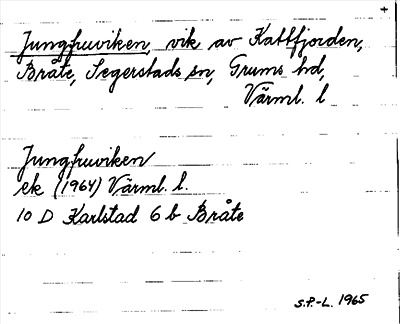 Jungfruviken, vik av Kattfjorden,
Bråte, Segerstads sn, Grums hd,
Värml. l
Jungfruviken
ek (1964) Värml. l.
10 D Karlstad 6 b Bråte
S.P.-L. 1965